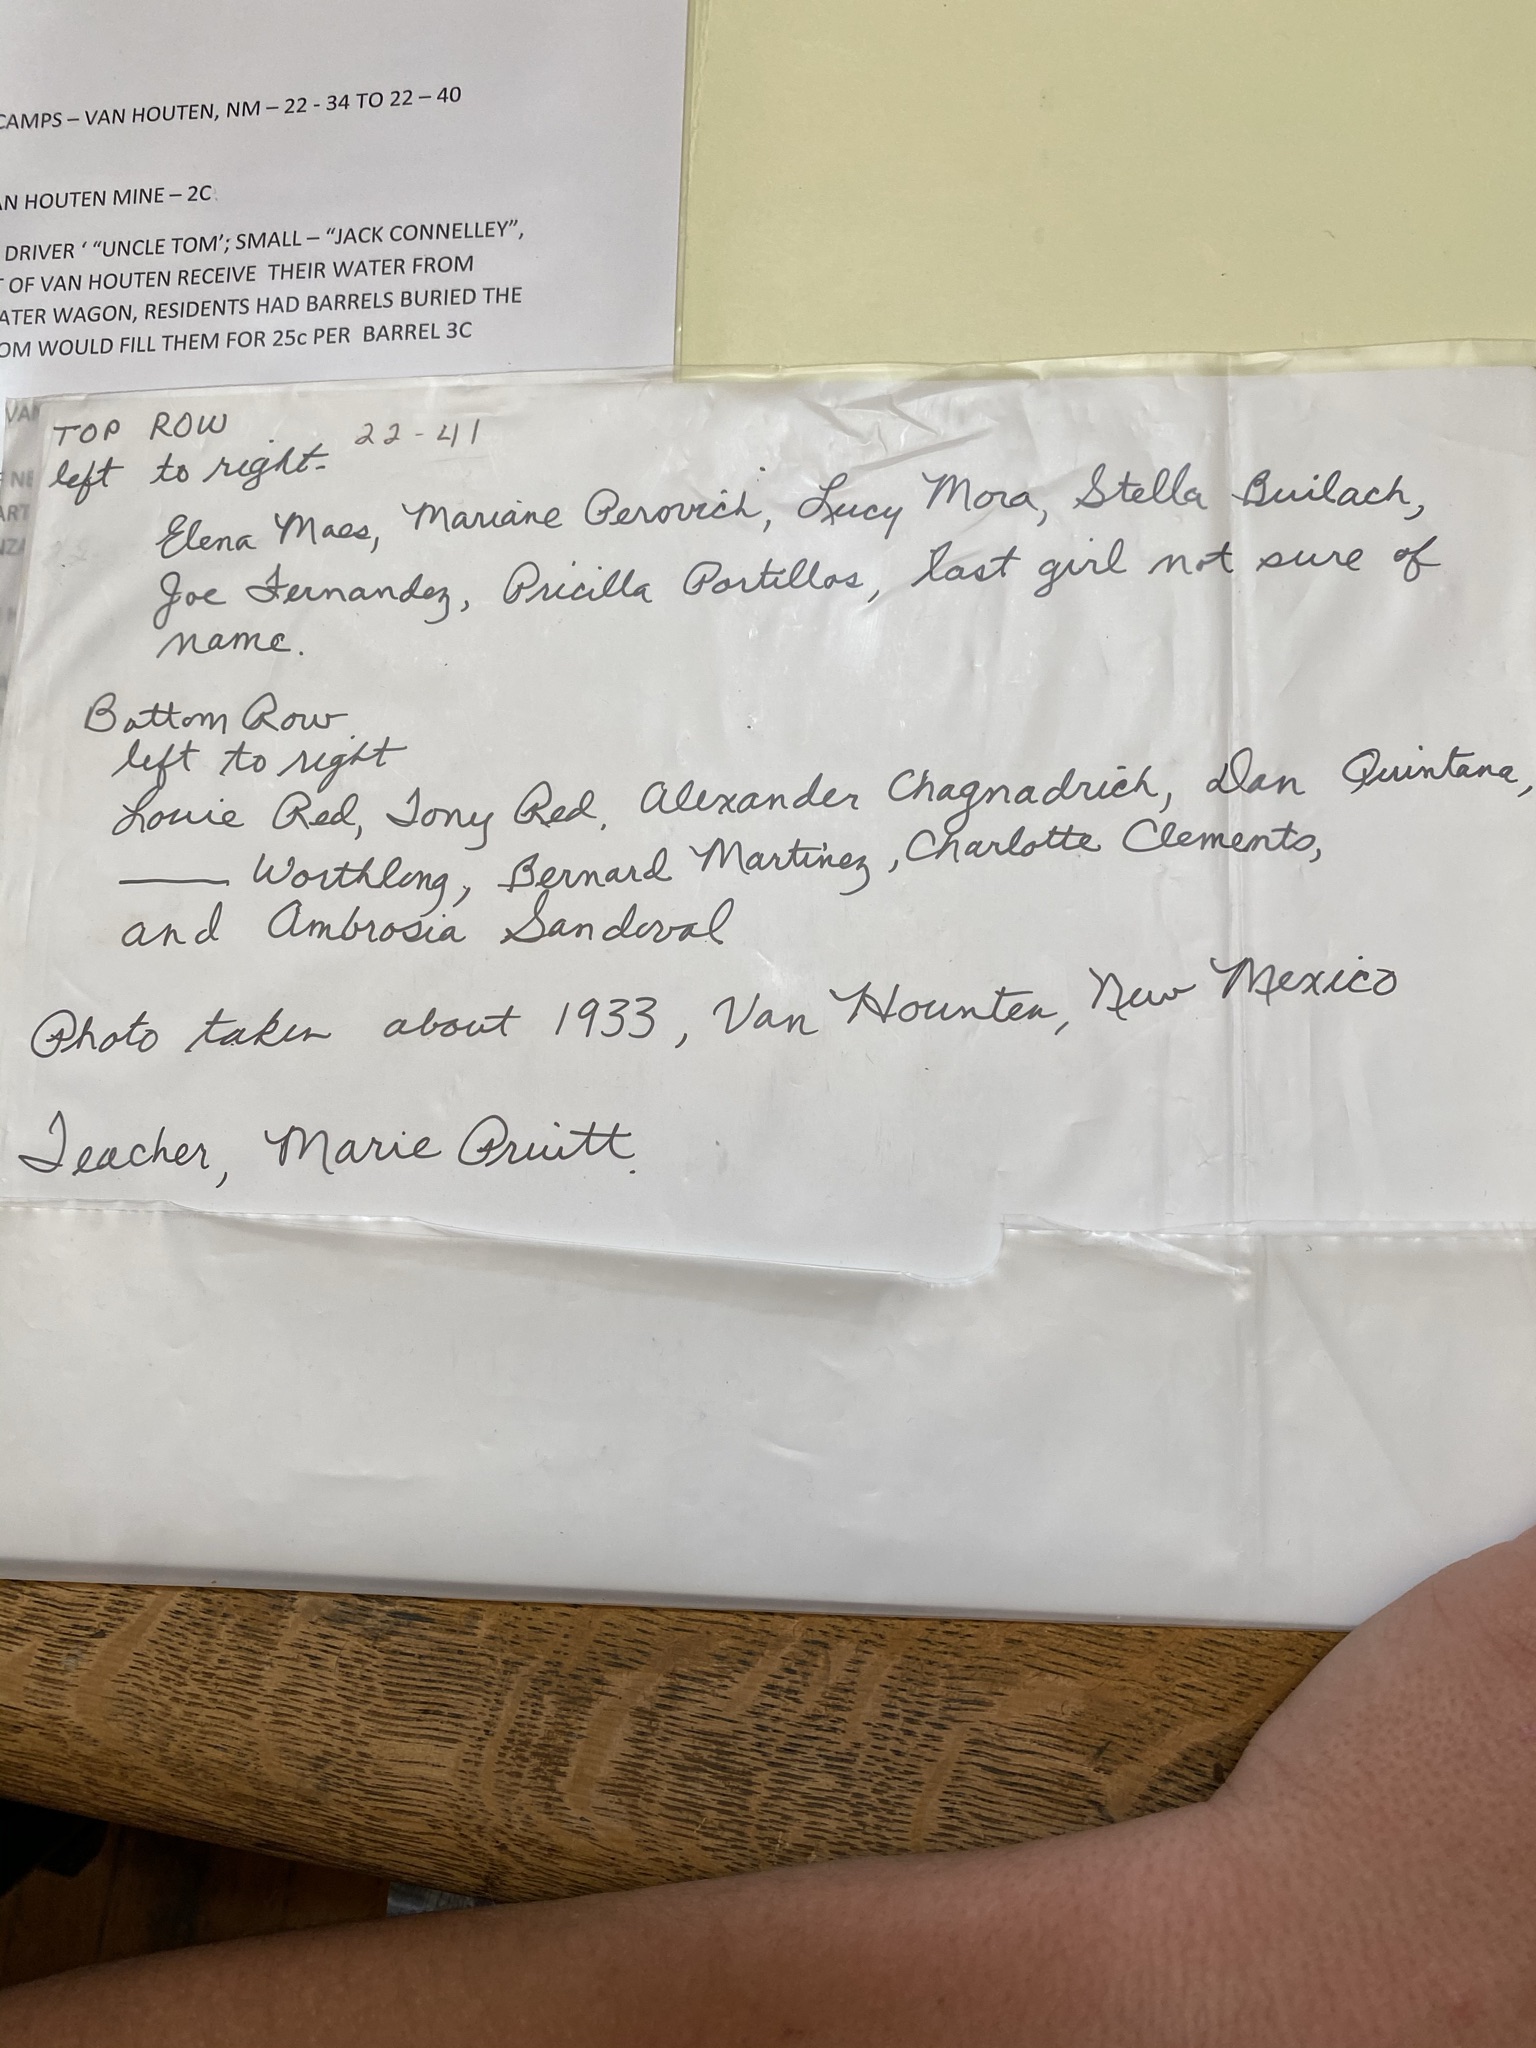 CAMPS – VAN HOUTEN, NM – 22 - 34 TO 22 – 40
AN HOUTEN MINE – 2C
DRIVER ‘ “UNCLE TOM’; SMALL – “JACK CONNELLEY”,
T OF VAN HOUTEN RECEIVE THEIR WATER FROM
ATER WAGON, RESIDENTS HAD BARRELS BURIED THE
OM WOULD FILL THEM FOR 25c PER BARREL 3C
VAN
TOP ROW 22-41
left to right-
Elena Maes, Mariane Perovich, Lucy Mora, Stella Builach,
Joe Fernandez, Pricilla Portillos, last girl not sure of
name.
Bottom Row
left to right
Louie Red, Tony Red, Alexander Chagnadrich, Dan Quintana,
____ Worthlong, Bernard Martinez, Charlotte Clements,
and Ambrosia Sandoval
Photo taken about 1933, Van Hounten, New Mexico
Teacher, Marie Pruitt.